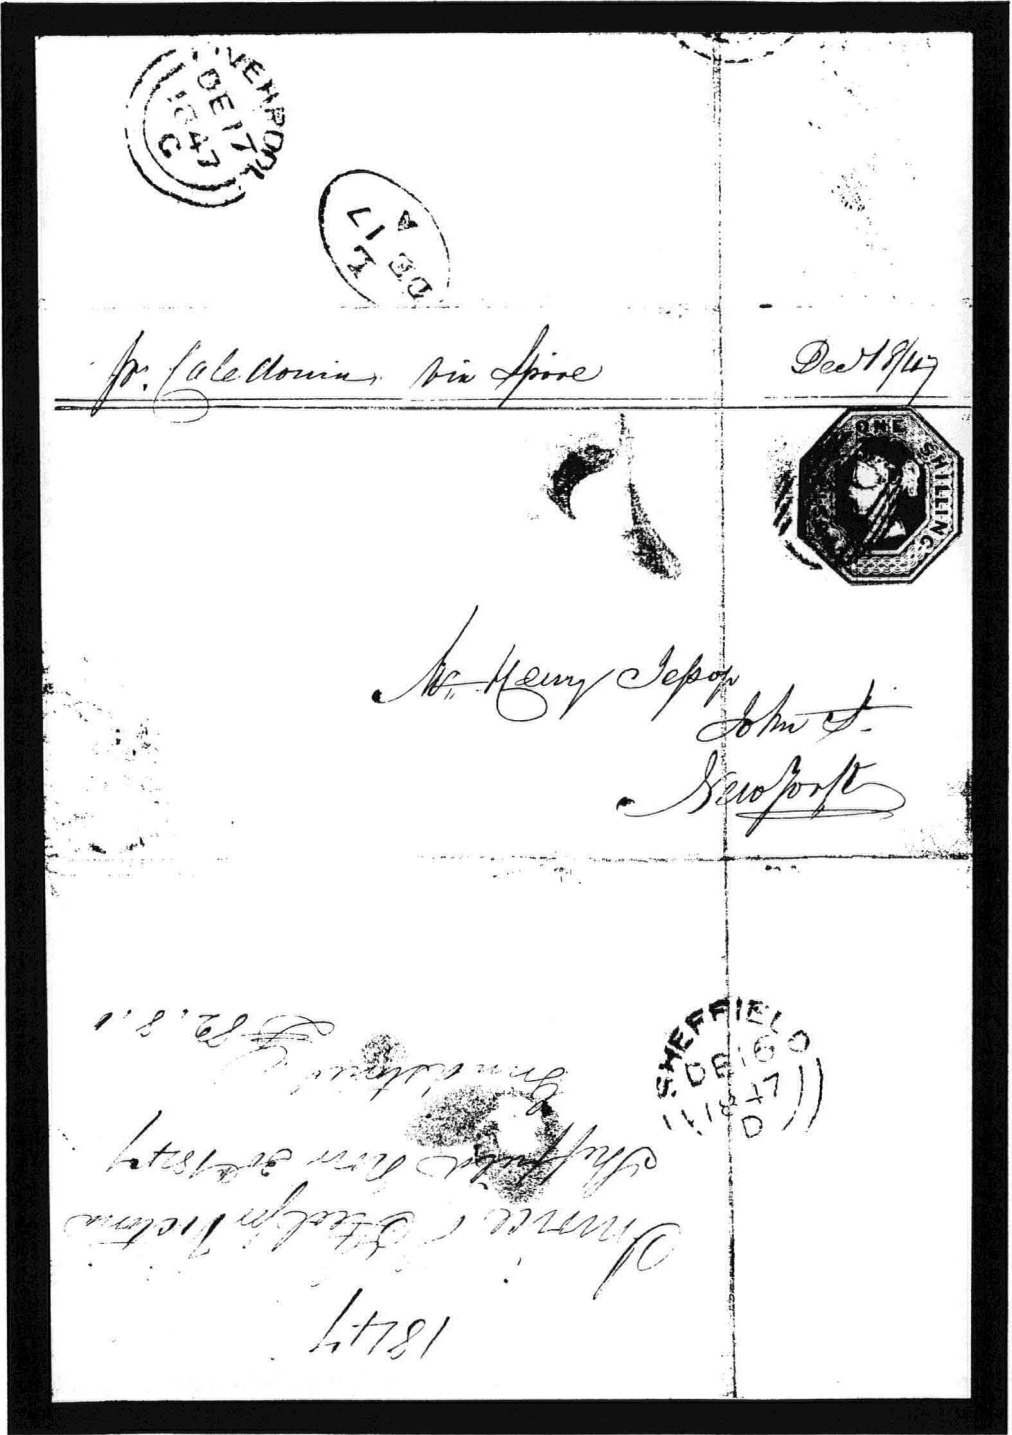 LIVERPOOL
DE 17
1847
G
L
DE 17
A
pr. Caledonia via Lpool
Decr 18/47
ONE SHILLING
Mr. Henry Jessop
John St.
New York
SHEFFIELD
DE 16
1847
D
1847
Invoice Steel pr Victoria
Sheffield Novr 30 1847
£ 82.8.1